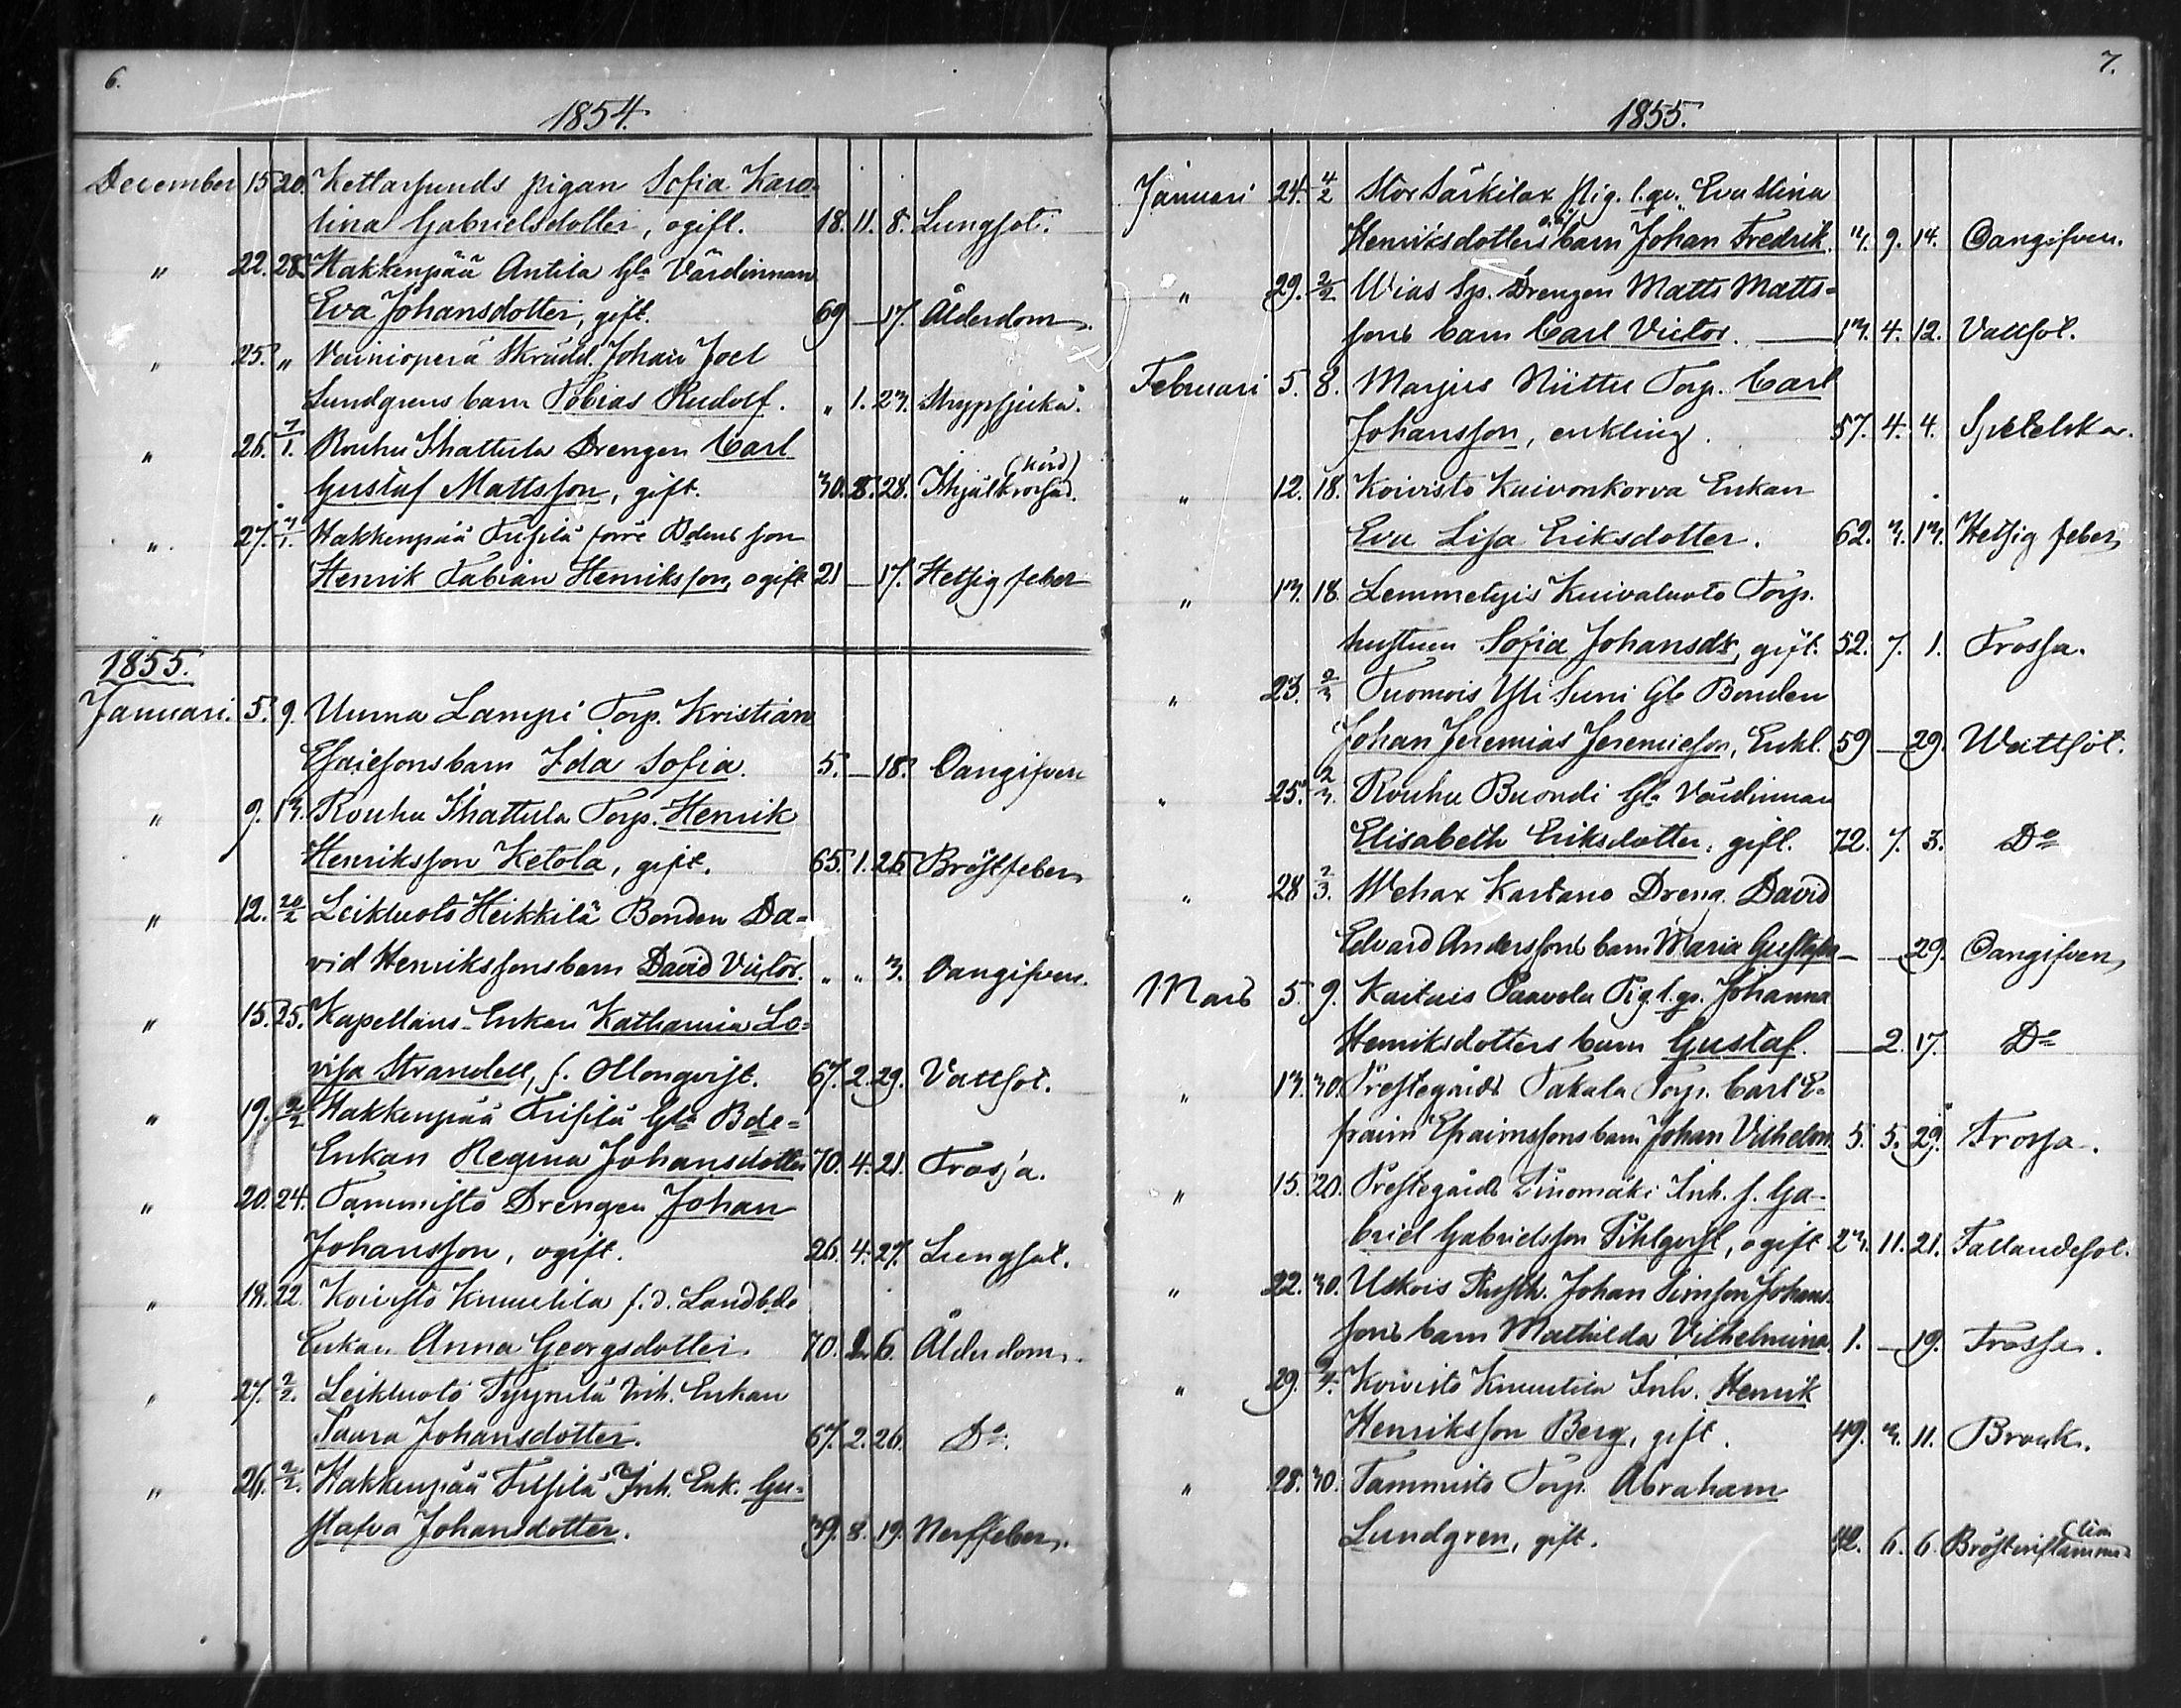 6.
1854.
December 15. 20. Kettarsunds pigan Sofia Karo-
lina Gabrielsdotter, ogift. 18. 11. 8. Lungsot.
" 22. 28. Hakkenpää Antila Gla Värdinnan
Eva Johansdotter, gift. 69 — 17. Ålderdom.
" 25. " Vainioperä Skrädd. Johan Joel
Lundgrens barn Tobias Rudolf. " 1. 23. Strypsjuka.
" 26. 7/1. Rouhu Skattula Drengen Carl (körd)
Gustaf Mattsson, gift. 30. 8. 28. Ihjälkrossad.
" 27. 3/1. Hakkenpää förre Bdens son
Henrik Fabian Henriksson, ogift 21 — 17. Hetsig feber
1855.
Januari. 5. 9. Unma Lampi Torp. Kristian
Esaiesons barn Ida Sofia. 5. — 18. Oangifven
" 9. 13. Rouhu Skattula Torp. Henrik
Henriksson Ketola, gift. 65. 1. 26. Bröstfeber
" 12. 20/2 Leikluoto Heikkilä Bonden Da-
vid Henrikssons barn David Victor. " " 3. Oangifven.
" 15. 25. Kapellans Enkan Katharina Lo-
visa Strandell, f. Ollonqvist. 67. 2. 29. Vattsot.
" 19. 2/2 Hakkenpää Gla Bde-
Enkan Regina Johansdotter 70. 4. 21. Frossa.
" 20. 24. Tammisto Drengen Johan
Johansson, ogift. 26. 4. 27. Lungsot.
" 18. 22. Koivisto Knuutila f.d. Landbde
Enkan Anna Georgsdotter. 70. 6. Ålderdom.
" 27. 2/2. Leikluoto Tyynilä Inh. Enkan
Laura Johansdotter. 67. 2. 26. Do.
" 26. 2/2. Hakkenpää Inh. Enk. Gu-
stafva Johansdotter. 39. 8. 19. Nerffeber.
7.
1855.
Januari 24. 4/2 Stor Särkilax Pig. l.qv. Eva Stina
Henriksdotters barn Johan Fredrik. 3. 9. 14. Oangifven.
" 29. 2/2. Wias Sp. Drengen Matts Matts-
sons barn Carl Victor. — 13. 4. 12. Vattsot.
Februari 5. 8. Marjus Niittu Torp. Carl
Johansson, enkling. 57. 4. 4. Spetelska.
" 12. 18. Koivisto Kaivonkorva Enkan
Eva Lisa Eriksdotter. 62. 3. 13. Hetsig feber
" 13. 18. Lemmetyis Kuivaluoto Torp.
hustrun Sofia Johansdr, gift. 52. 7. 1. Frossa.
" 23. 2/3 Tuomois Yli Suni Gle Bonden
Johan Jeremias Jeremiesson, Enkl. 59 — 29. Wattsot.
" 25. 2/3. Rouhu Buondi Gla Värdinnan
Elisabeth Eriksdotter, gift. 72. 7. 3. Do
" 28 2/3. Wehax Kartano Dreng. David
Edvard Anderssons barn Maria Gustafva — — 29. Oangifven
Mars 5. 9. Kaitais Paavola Pig. l.qv. Johanna
Henriksdotters barn Gustaf. — 2. 17. Do
" 13. 30. Prestegårds Takala Torp. Carl E-
fraim Efraimssons barn Johan Vilhelm 5. 5. 29. Frossa.
" 15. 20. Prestegårds Inh. f. Ga-
briel Gabrielsson Pihlqvist, ogift 23. 11. 21. Fallandesot.
" 22. 30. Uskois Rusth. Johan Simson Johans-
sons barn Mathilda Vilhelmina 1. — 19. Frossa.
" 29. 9/4. Koivisto Knuutila Inh. Henrik
Henriksson Berg, gift. 49. 3. 11. Brock.
" 28. 30. Tammisto Torp. Abraham
Lundgren, gift. 42. 6. 6. Bröstinflamma-
(tion